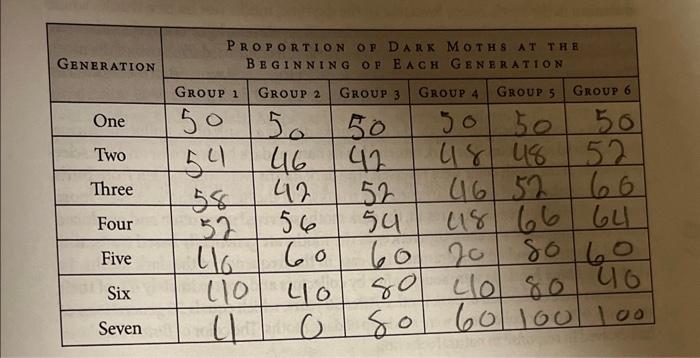 PROPORTION OF DARK MOTHS AT THE
GENERATION BEGINNING OF EACH GENERATION
GROUP 1 GROUP 2 GROUP 3 GROUP 4 GROUP 5 GROUP 6
One 50 50 50 50 50 50
Two 54 46 42 48 48 52
Three 58 42 52 46 52 66
Four 52 56 54 48 66 64
Five 46 60 60 20 80 60
Six 40 40 80 40 80 40
Seven 4 0 80 60 100 100